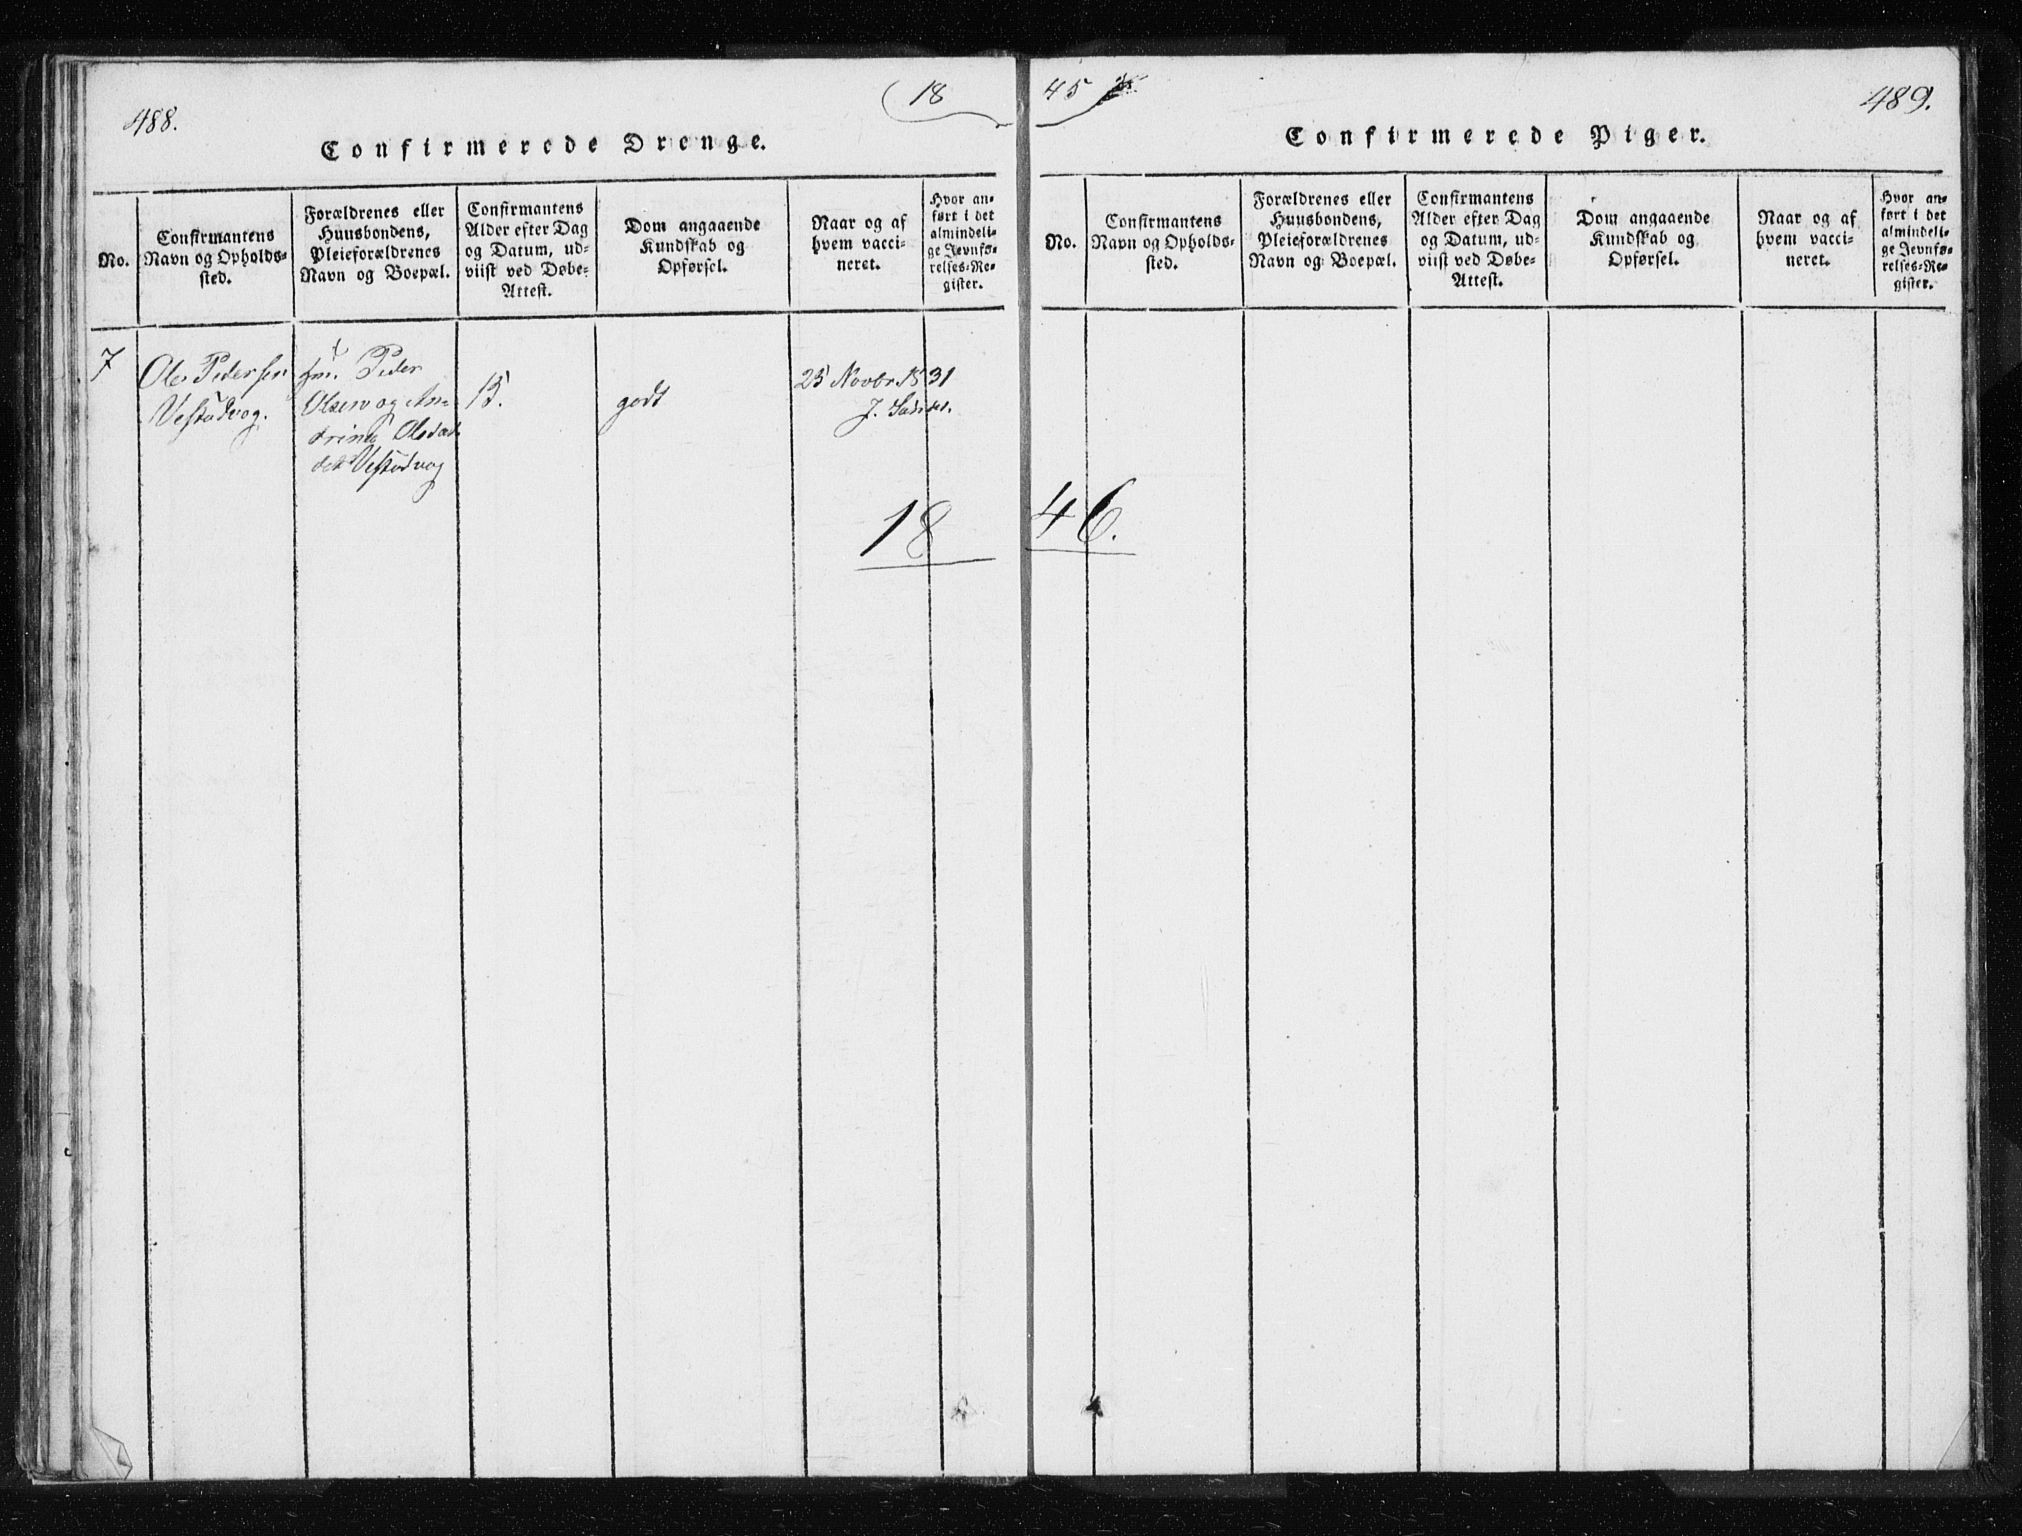 488.
18
45
489.
Confirmerede Drenge.
No.
Confirmantens
Navn og Opholds-
sted.
Forældrenes eller
Huusbondens,
Pleieforældrenes
Navn og Boepæl.
Confirmantens
Alder efter Dag
og Datum, ud-
viist ved Døbe-
Attest.
Dom angaaende
Kundskab og
Opførsel.
Naar og af
hvem vacci-
neret.
Hvor an-
ført i det
almindeli-
ge Jevnfø-
relses-Re-
gister.
7
Ole Pedersen
Vestadvog.
Peder
Olsen og An-
drine Olsdat-
ter Vestadvog
15.
godt
25 Novbr 1831
J.
18
46.
Confirmerede Piger.
No.
Confirmantens
Navn og Opholds-
sted.
Forældrenes eller
Huusbondens,
Pleieforældrenes
Navn og Boepæl.
Confirmantens
Alder efter Dag
og Datum, ud-
viist ved Døbe-
Attest.
Dom angaaende
Kundskab og
Opførsel.
Naar og af
hvem vacci-
neret.
Hvor an-
ført i det
almindeli-
ge Jevnfø-
relses-Re-
gister.